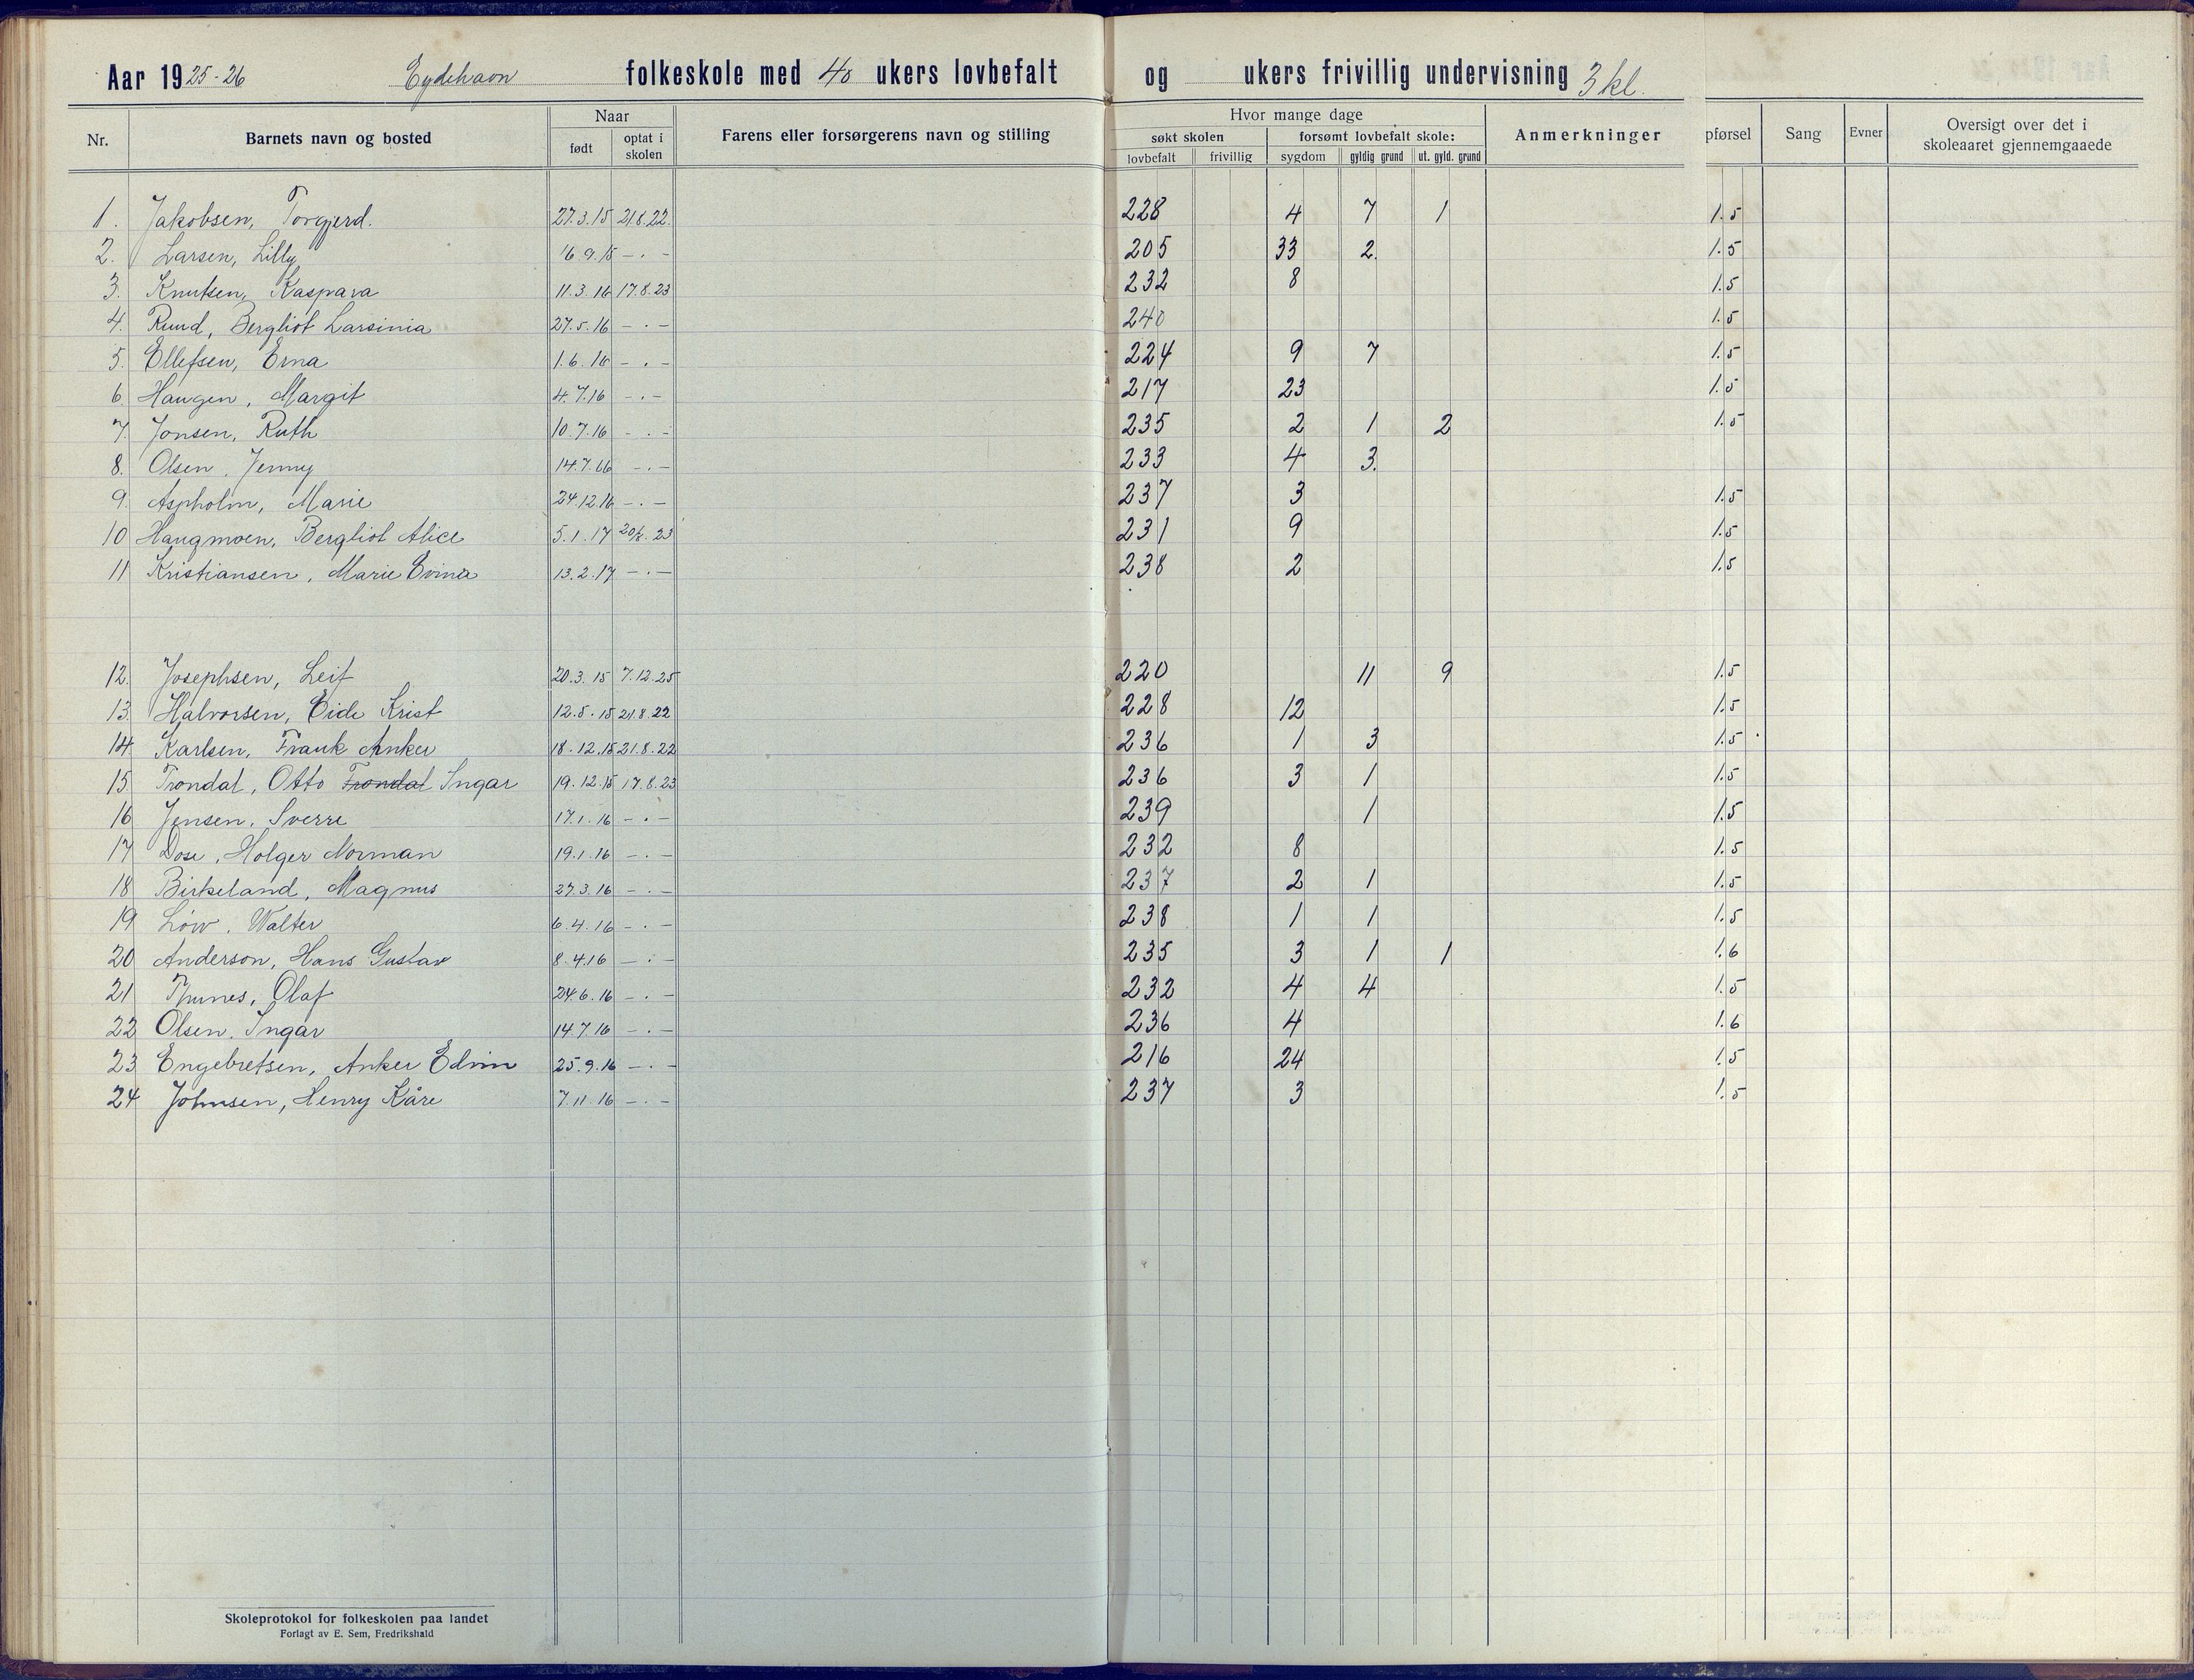 Aar 1925-26 Eydehavn folkeskole med 40 ukers lovbefalt og ukers frivillig undervisning 3 kl.
Nr. Barnets navn og bosted Naar født optat i skolen Farens eller forsørgerens navn og stilling Hvor mange dage søkt skolen lovbefalt frivillig forsømt lovbefalt skole: sygdom gyldig grund ut. gyld. grund Anmerkninger pførsel Sang Evner Oversigt over det i skoleaaret gjennemgaaede
1. Jakobsen, Torgjerd. 27.3.15 21.8.22. 228 4 7 1 1.5
2. Larsen, Lilly 16.9.15 -.- 205 33 2. 1.5
3. Knutsen, Kaspara 11.3.16 17.8.23 232 8 1.5
4. Ruud, Bergliot Larsinia 27.5.16 -.- 240 1.5
5. Ellefsen, Erna 1.6.16 -.- 224 9 7 1.5
6 Haugen, Margit 4.7.16 -.- 217 23 1.5
7. Jonsen, Ruth 10.7.16 -.- 235 2 1 2 1.5
8. Olsen, Jenny 14.7.16 -.- 233 4 3.
9. Aspholm, Marie 24.12.16 -.- 237 3 1.5
10 Haugmoen, Bergliot Alice 5.1.17 20/8.23 231 9 1.5
11 Kristiansen, Marie Evina 13.2.17 -.- 238 2 1.5
12. Josephsen, Leif 20.3.15 7.12.25 220 11 9 1.5
13. Halvorsen, Eide Krist 12.5.15 21.8.22 228 12 1.5
14. Karlsen, Frank Anker 18.12.15 21.8.22 236 1 3 1.5
15 Trondal, Otto Trondal Ingar 19.12.15 17.8.23 236 3 1 1.5
16 Jensen, Sverre 17.1.16 -.- 239 1 1.5
17 Dose, Holger Norman 19.1.16 -.- 232 8 1.5
18 Birkeland, Magnus 27.3.16 -.- 237 2 1 1.5
19 Löw, Walter 6.4.16 -.- 238 1 1 1.5
20 Anderson, Hans Gustav 8.4.16 -.- 235 3 1 1 1.6
21 Thunes, Olaf 24.6.16 -.- 232 4 4 1.5
22 Olsen, Ingar 14.7.16 -.- 236 4 1.6
23 Engebretsen, Anker Edvin 25.9.16 -.- 216 24 1.5
24 Johnsen, Henry Kåre 7.11.16 -.- 237 3 1.5
Skoleprotokol for folkeskolen paa landet
Forlagt av E. Sem, Fredrikshald